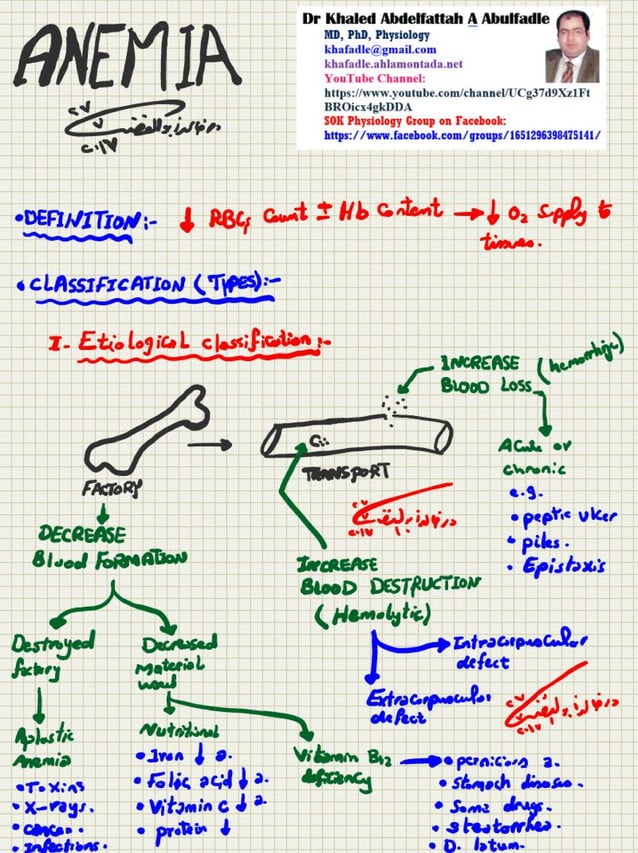 ANEMIA
Dr Khaled Abdelfattah A Abulfadle
MD, PhD, Physiology
khafadle@gmail.com
khafadle.ahlamontada.net
YouTube Channel:
https://www.youtube.com/channel/UCg37d9Xz1Ft
BROicx4gkDDA
SOK Physiology Group on Facebook:
https://www.facebook.com/groups/1651296398475141/
•DEFINITION:- ↓ RBCs Count ± Hb Content → ↓ O2 Supply to
tissues.
• CLASSIFICATION (TYPES):-
I- Etiological classification:-
INCREASE
BLOOD LOSS
(hemorrhagic)
Acute or
chronic
e.g.
• peptic ulcer
• piles.
• Epistaxis
FACTORY
TRANSPORT
DECREASE
Blood FORMATION
INCREASE
BLOOD DESTRUCTION
(Hemolytic)
Intracorpuscular
defect
Extracorpuscular
defect
Destroyed
factory
Aplastic
Anemia
•Toxins
•X-rays.
•cancer.
•Infections.
Decreased
material
used
Nutritional
•Iron ↓ a.
•Folic acid ↓ a.
•Vitamin c ↓ a.
•protein ↓
Vitamin B12
deficiency
•pernicious a.
•stomach disease.
•Some drugs.
•steatorrhea.
•D. latum.